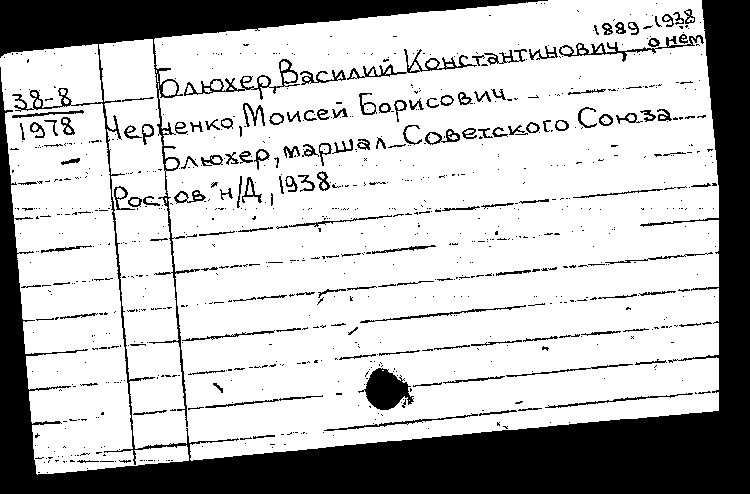 1889-1938
Блюхер, Василий Константинович, о нём
38-8
1978
Черненко, Моисей Борисович
Блюхер, маршал Советского Союза
Ростов н/Д, 1938